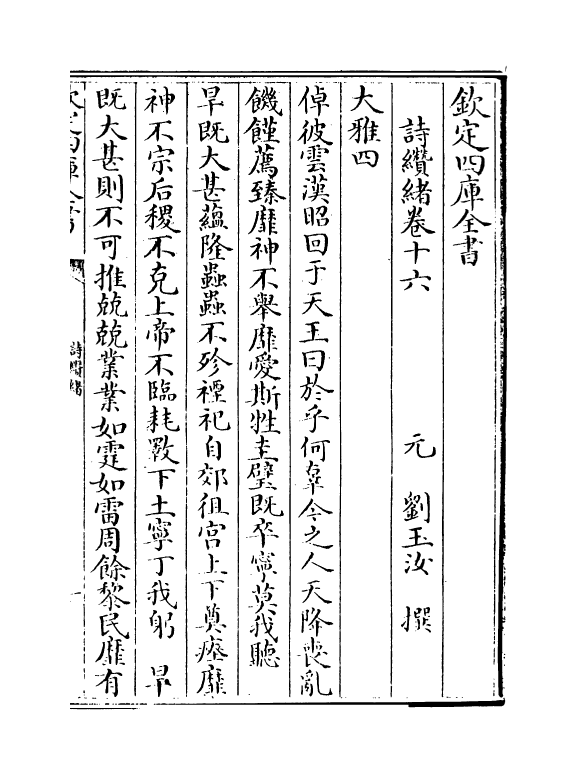 欽定四庫全書
詩纘緒卷十六　元　劉玉汝　撰
大雅四
倬彼雲漢昭回于天王曰於乎何辜今之人天降喪亂
饑饉薦臻靡神不舉靡愛斯牲圭璧既卒寧莫我聽
旱既大甚蘊隆蟲蟲不殄禋祀自郊徂宫上下奠瘞靡
神不宗后稷不克上帝不臨耗斁下土寧丁我躬　旱
既大甚則不可推兢兢業業如霆如雷周餘黎民靡有
欽定四庫全書
詩纘緒
一